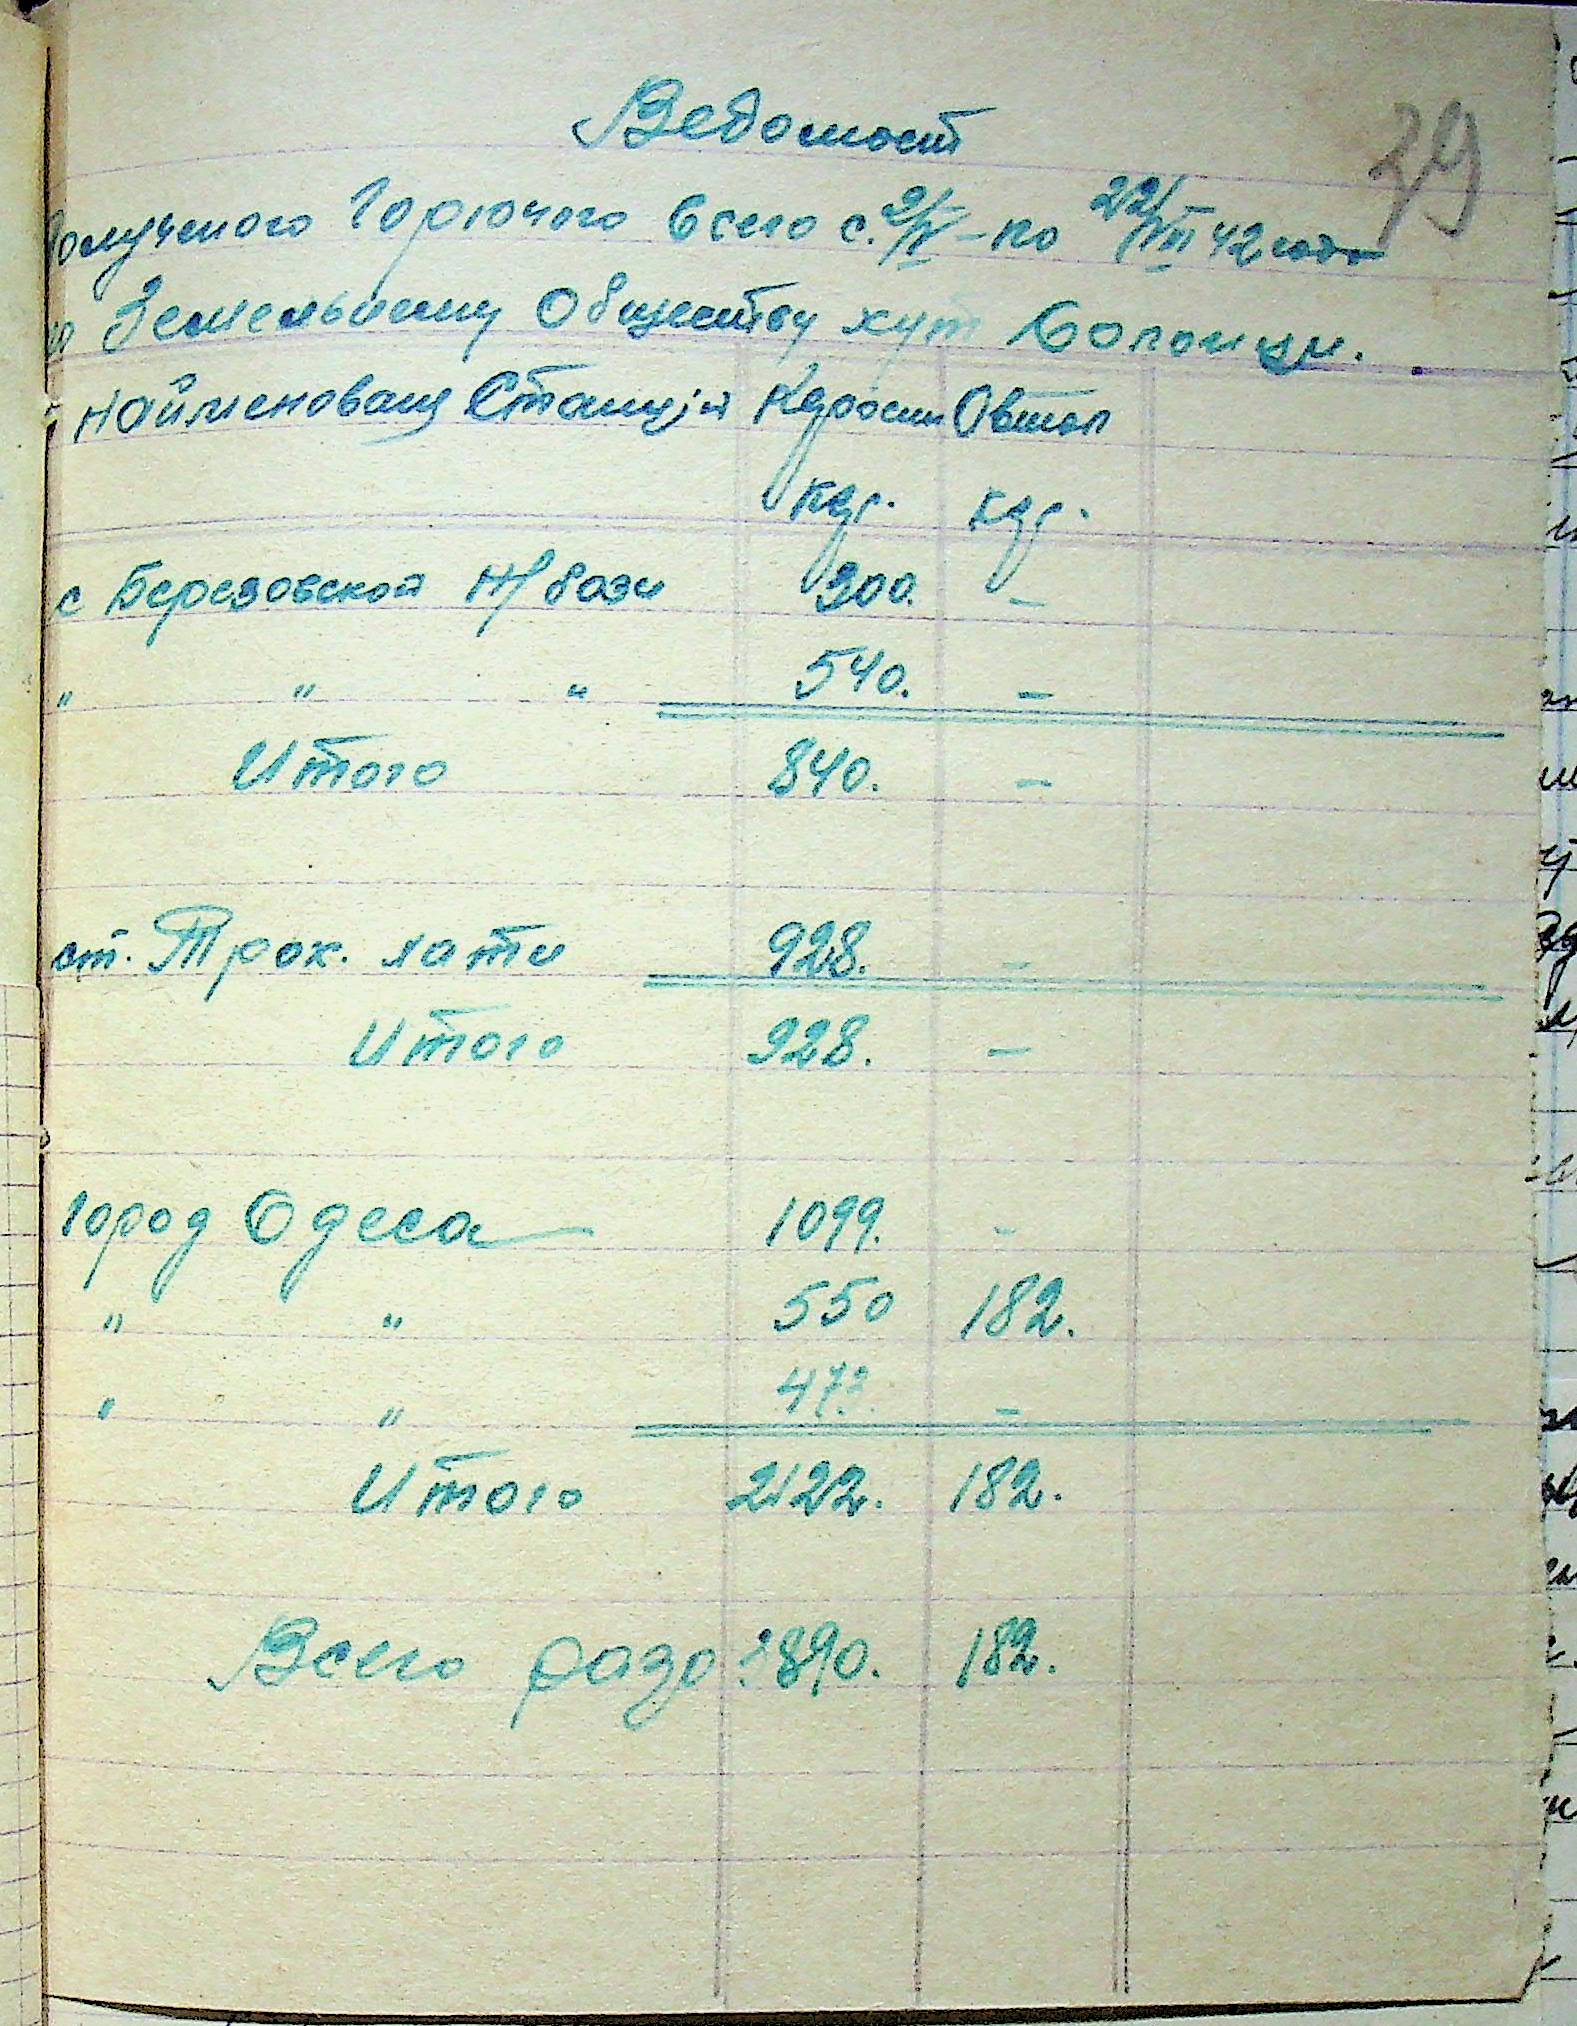 Ведомост
39
Полученого Горючого всего с. 2/V – по 22/VIII 42 года
по Земельному Обществу хут Солонци.
Найменоваия Станций Керосин Овтол
Кгр. Кгр.
с Березовской Н/бази 300. –
" " " 540. –
Итого 840. –
ст. Трох. лати 928. –
Итого 928. –
Город Одеса 1099. –
" " 550 182.
" " 473. –
Итого 2122. 182.
Всего разо 3890. 182.